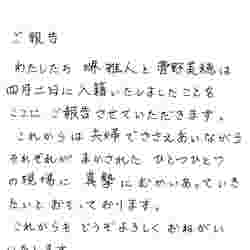 ご報告
わたしたち 堺雅人と菅野美穂は
四月二日に入籍いたしましたことを
ここに ご報告させていただきます。
これからは夫婦でささえあいながら
それぞれが まかされた ひとつひとつ
の現場に 真摯に むかいあっていき
たいと おもっております。
これからも どうぞよろしく おねがい
いたします